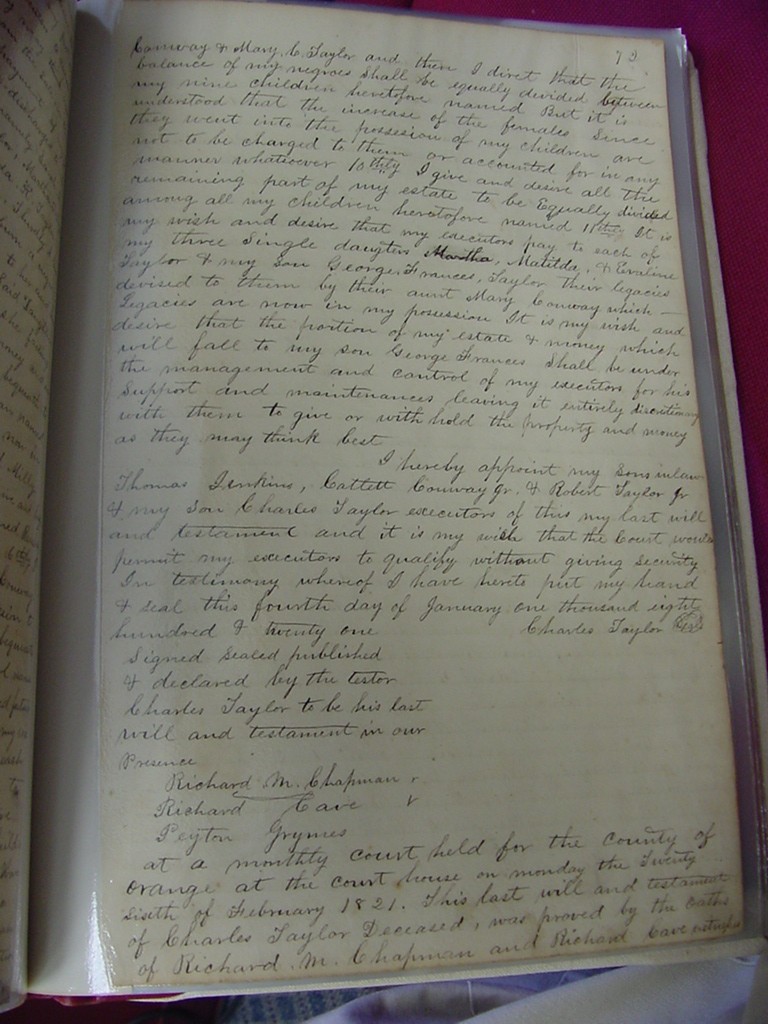 73
Conway & Mary C. Taylor and then I diret that the
balance of my negroes shall be equally divided between
my nine children heretofore named But it is
understood that the increase of the females Since
they went into the possesion of my children are
not to be charged to them or accounted for in any
manner whatsoever 10thly I give and desire all the
remaining part of my estate to be Equally divided
among all my children heretofore named 11thly It is
my wish and desire that my executors pay to each of
my three Single daugters Martha, Matilda, & Evaline
Taylor & my son George Frances, Taylor their legacies
devised to them by their aunt Mary Conway which
Legacies are now in my possession It is my wish and
desire that the portion of my estate & money which
will fall to my son George Frances Shall be under
the management and control of my executors for his
Support and maintenances leaving it entirely discretionary
with them to give or with hold the property and money
as they may think best
I hereby appoint my Sons inlaw
Thomas Jenkins, Cattett Conway Jr. & Robert Taylor Jr
& my son Charles Taylor executors of this my last will
and testament and it is my wish that the Court would
permit my executors to qualify without giving security
In testimony whereof I have hereto put my hand
& seal this fourth day of January one thousand eight
hundred & twenty one Charles Taylor
Signed sealed published
& declared by the testor
Charles Taylor to be his last
will and testament in our
Presence
Richard M. Chapman
Richard Cave
Peyton Grymes
at a monthly court held for the county of
orange at the court house on monday the Twenty
sixth of February 1821. This last will and testament
of Charles Taylor Deceased, was proved by the oaths
of Richard M. Chapman and Richard Cave